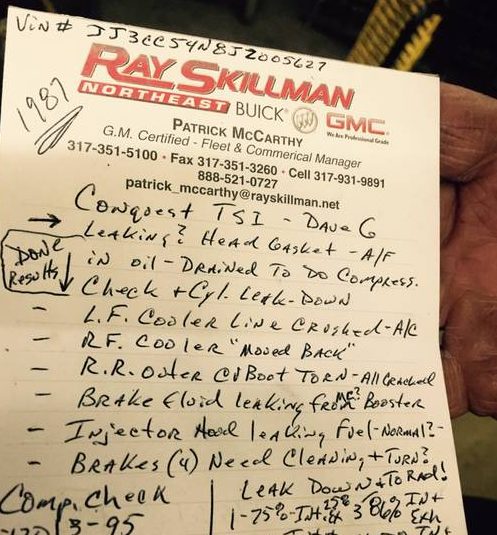 Vin # JJ3CC54N8JZ005627
1987
RAY SKILLMAN
NORTHEAST BUICK GMC
We Are Professional Grade
PATRICK MCCARTHY
G.M. Certified - Fleet & Commerical Manager
317-351-5100 • Fax 317-351-3260 • Cell 317-931-9891
888-521-0727
patrick_mccarthy@rayskillman.net
Conquest TSI - Dave G
→ Leaking? Head Gasket - A/F
in oil - Drained To Do Compress.
Done Results ↓
Check + Cyl. Leak-Down
- L.F. Cooler Line Crushed - A/C
- R.F. Cooler "Moved Back"
- R.R. Outer CV Boot Torn - All Cracked
- Brake Fluid leaking from MC? Booster
- Injector Hood leaking Fuel - Normal? -
- Brakes (4) Need Cleaning + Turn?
Comp. Check
3-95
Leak Down + To Rad!
1-75%-Int. 3 86% Int
Exh